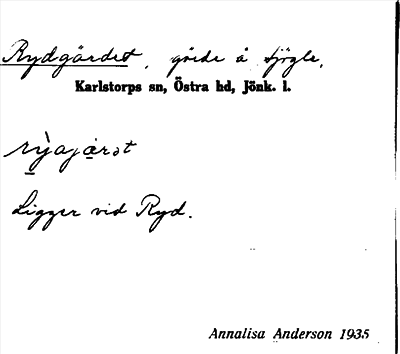 Rydgärdet, gärde å Sjögle,
Karlstorps sn, Östra hd, Jönk. l.
rỳajạrət
Ligger vid Ryd.
Annalisa Anderson 1935